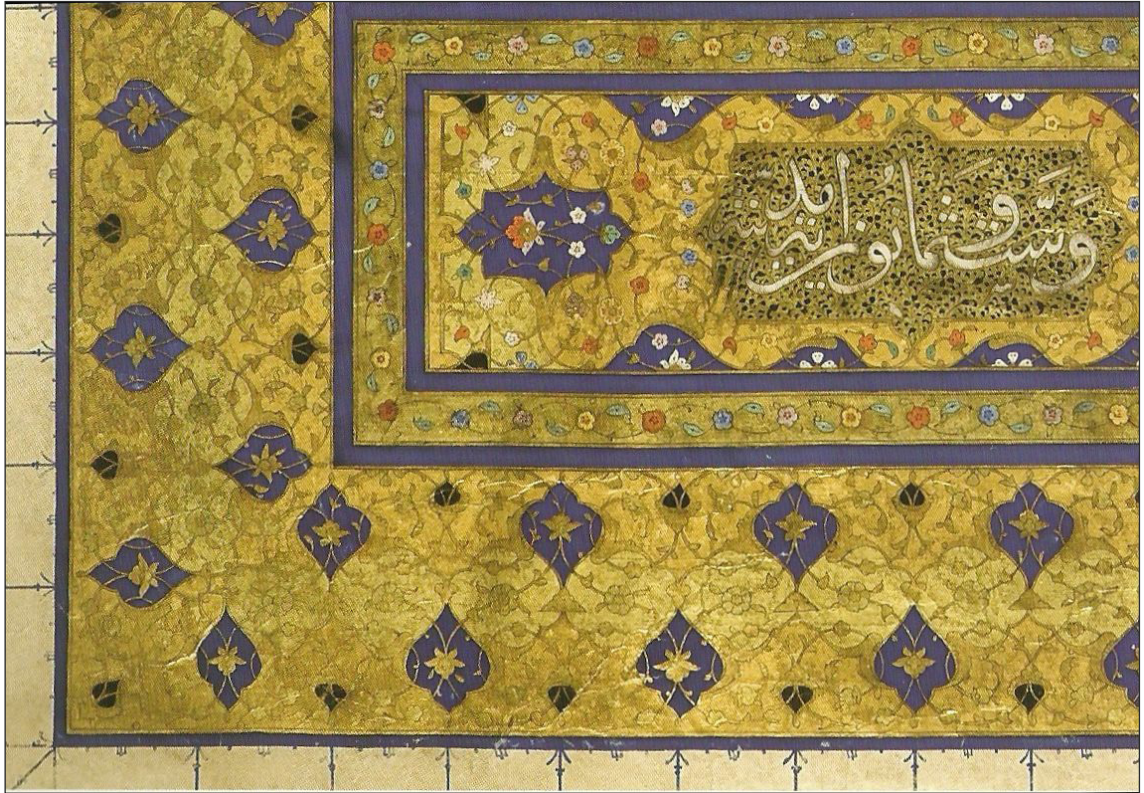 وَسِتّ وَثمانُون اية